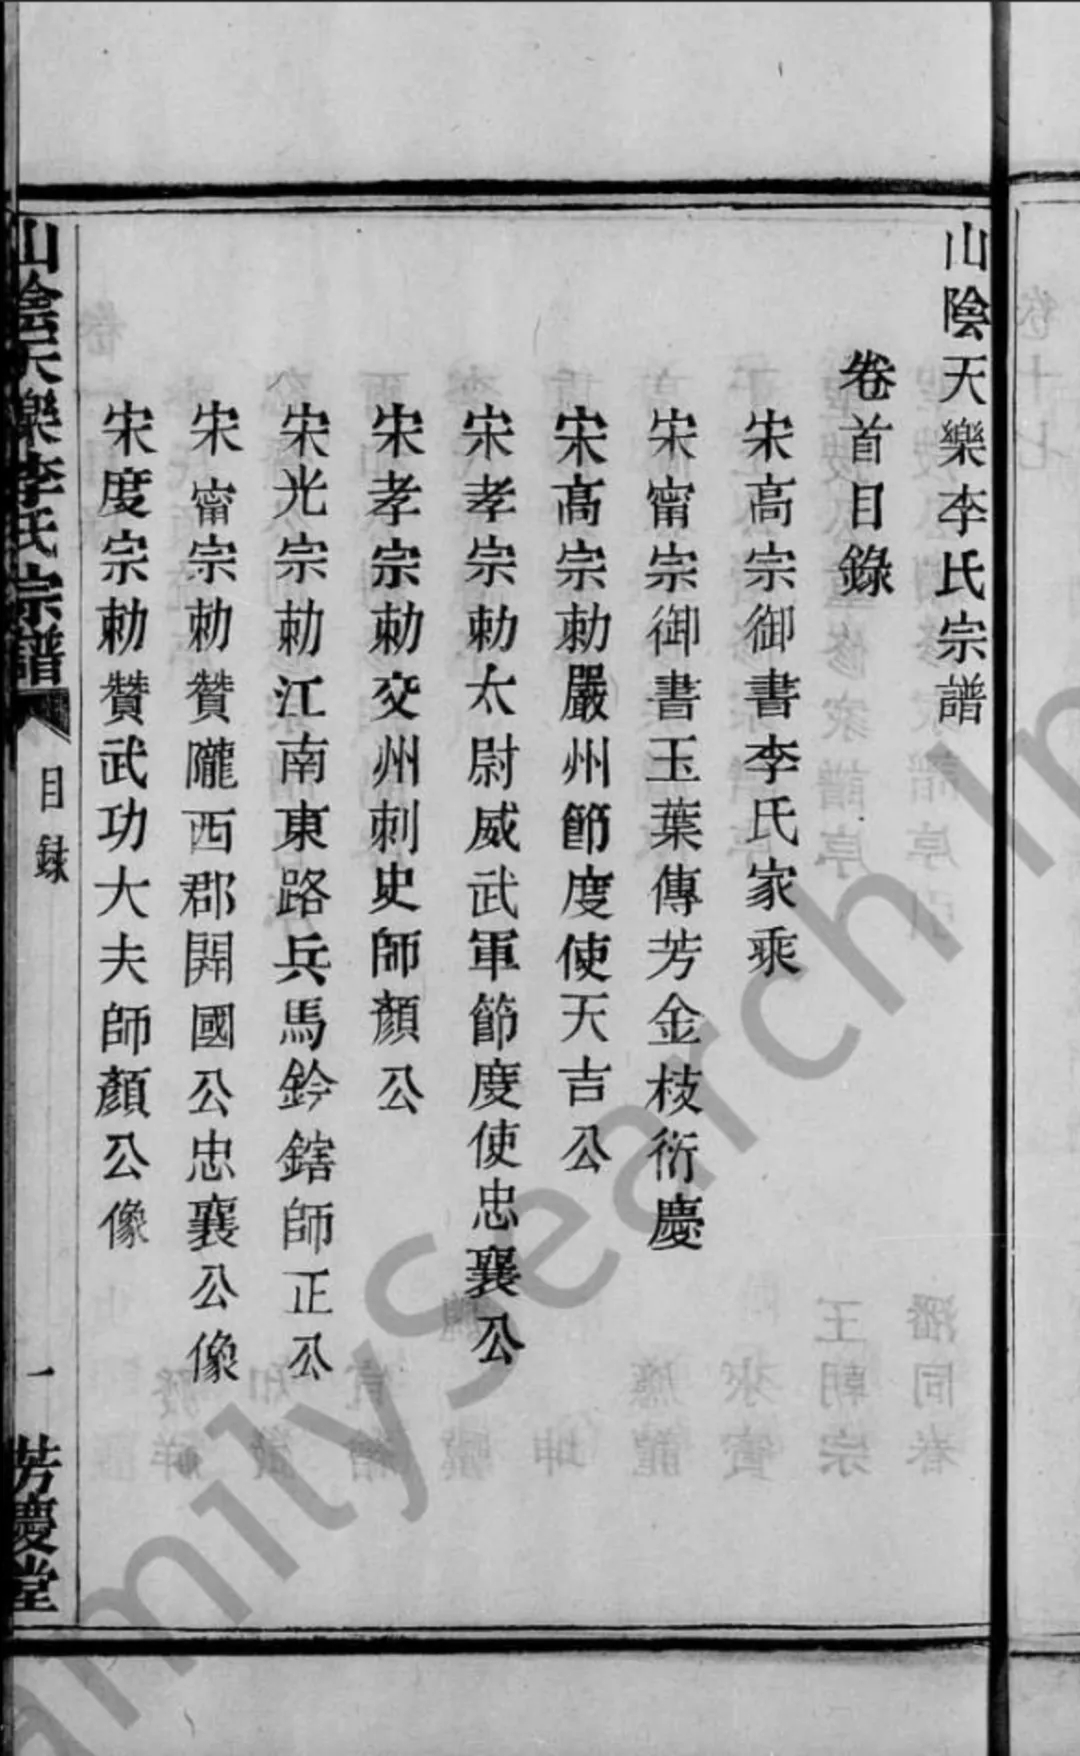 山陰天樂李氏宗譜
卷首目錄
宋高宗御書李氏家乘
宋甯宗御書玉葉傳芳金枝衍慶
宋高宗勅嚴州節度使天吉公
宋孝宗勅太尉威武軍節度使忠襄公
宋孝宗勅交州刺史師顏公
宋光宗勅江南東路兵馬鈐鎋師正公
宋甯宗勅贊隴西郡開國公忠襄公像
宋度宗勅贊武功大夫師顏公像
山陰天樂李氏宗譜 目錄 一 芳慶堂
FamilySearch In